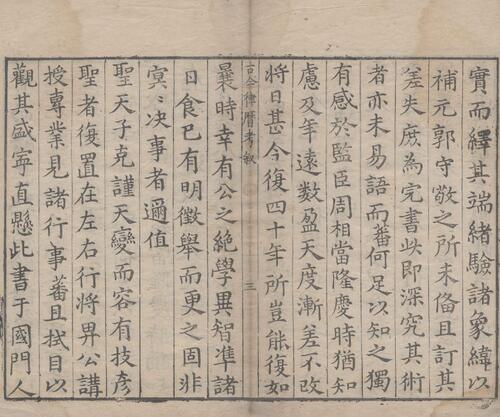 實而繹其端緒驗諸象緯以
補元郭守敬之所未偹且訂其
差失庶為完書此即深究其術
者亦未易語而蕃何足以知之獨
有感於監臣周相當隆慶時猶知
慮及年遠數盈天度漸差不改
將日甚今復四十年所豈能復如
古今律曆考叙
三
曩時幸有公之絶學異智准諸
日食已有明徵舉而更之固非
㝠〻决事者邇值
聖天子克謹天變而容有技彦
聖者復置在左右行將畀公講
授專業見諸行事蕃且拭目以
觀其盛寧直懸此書于國門人